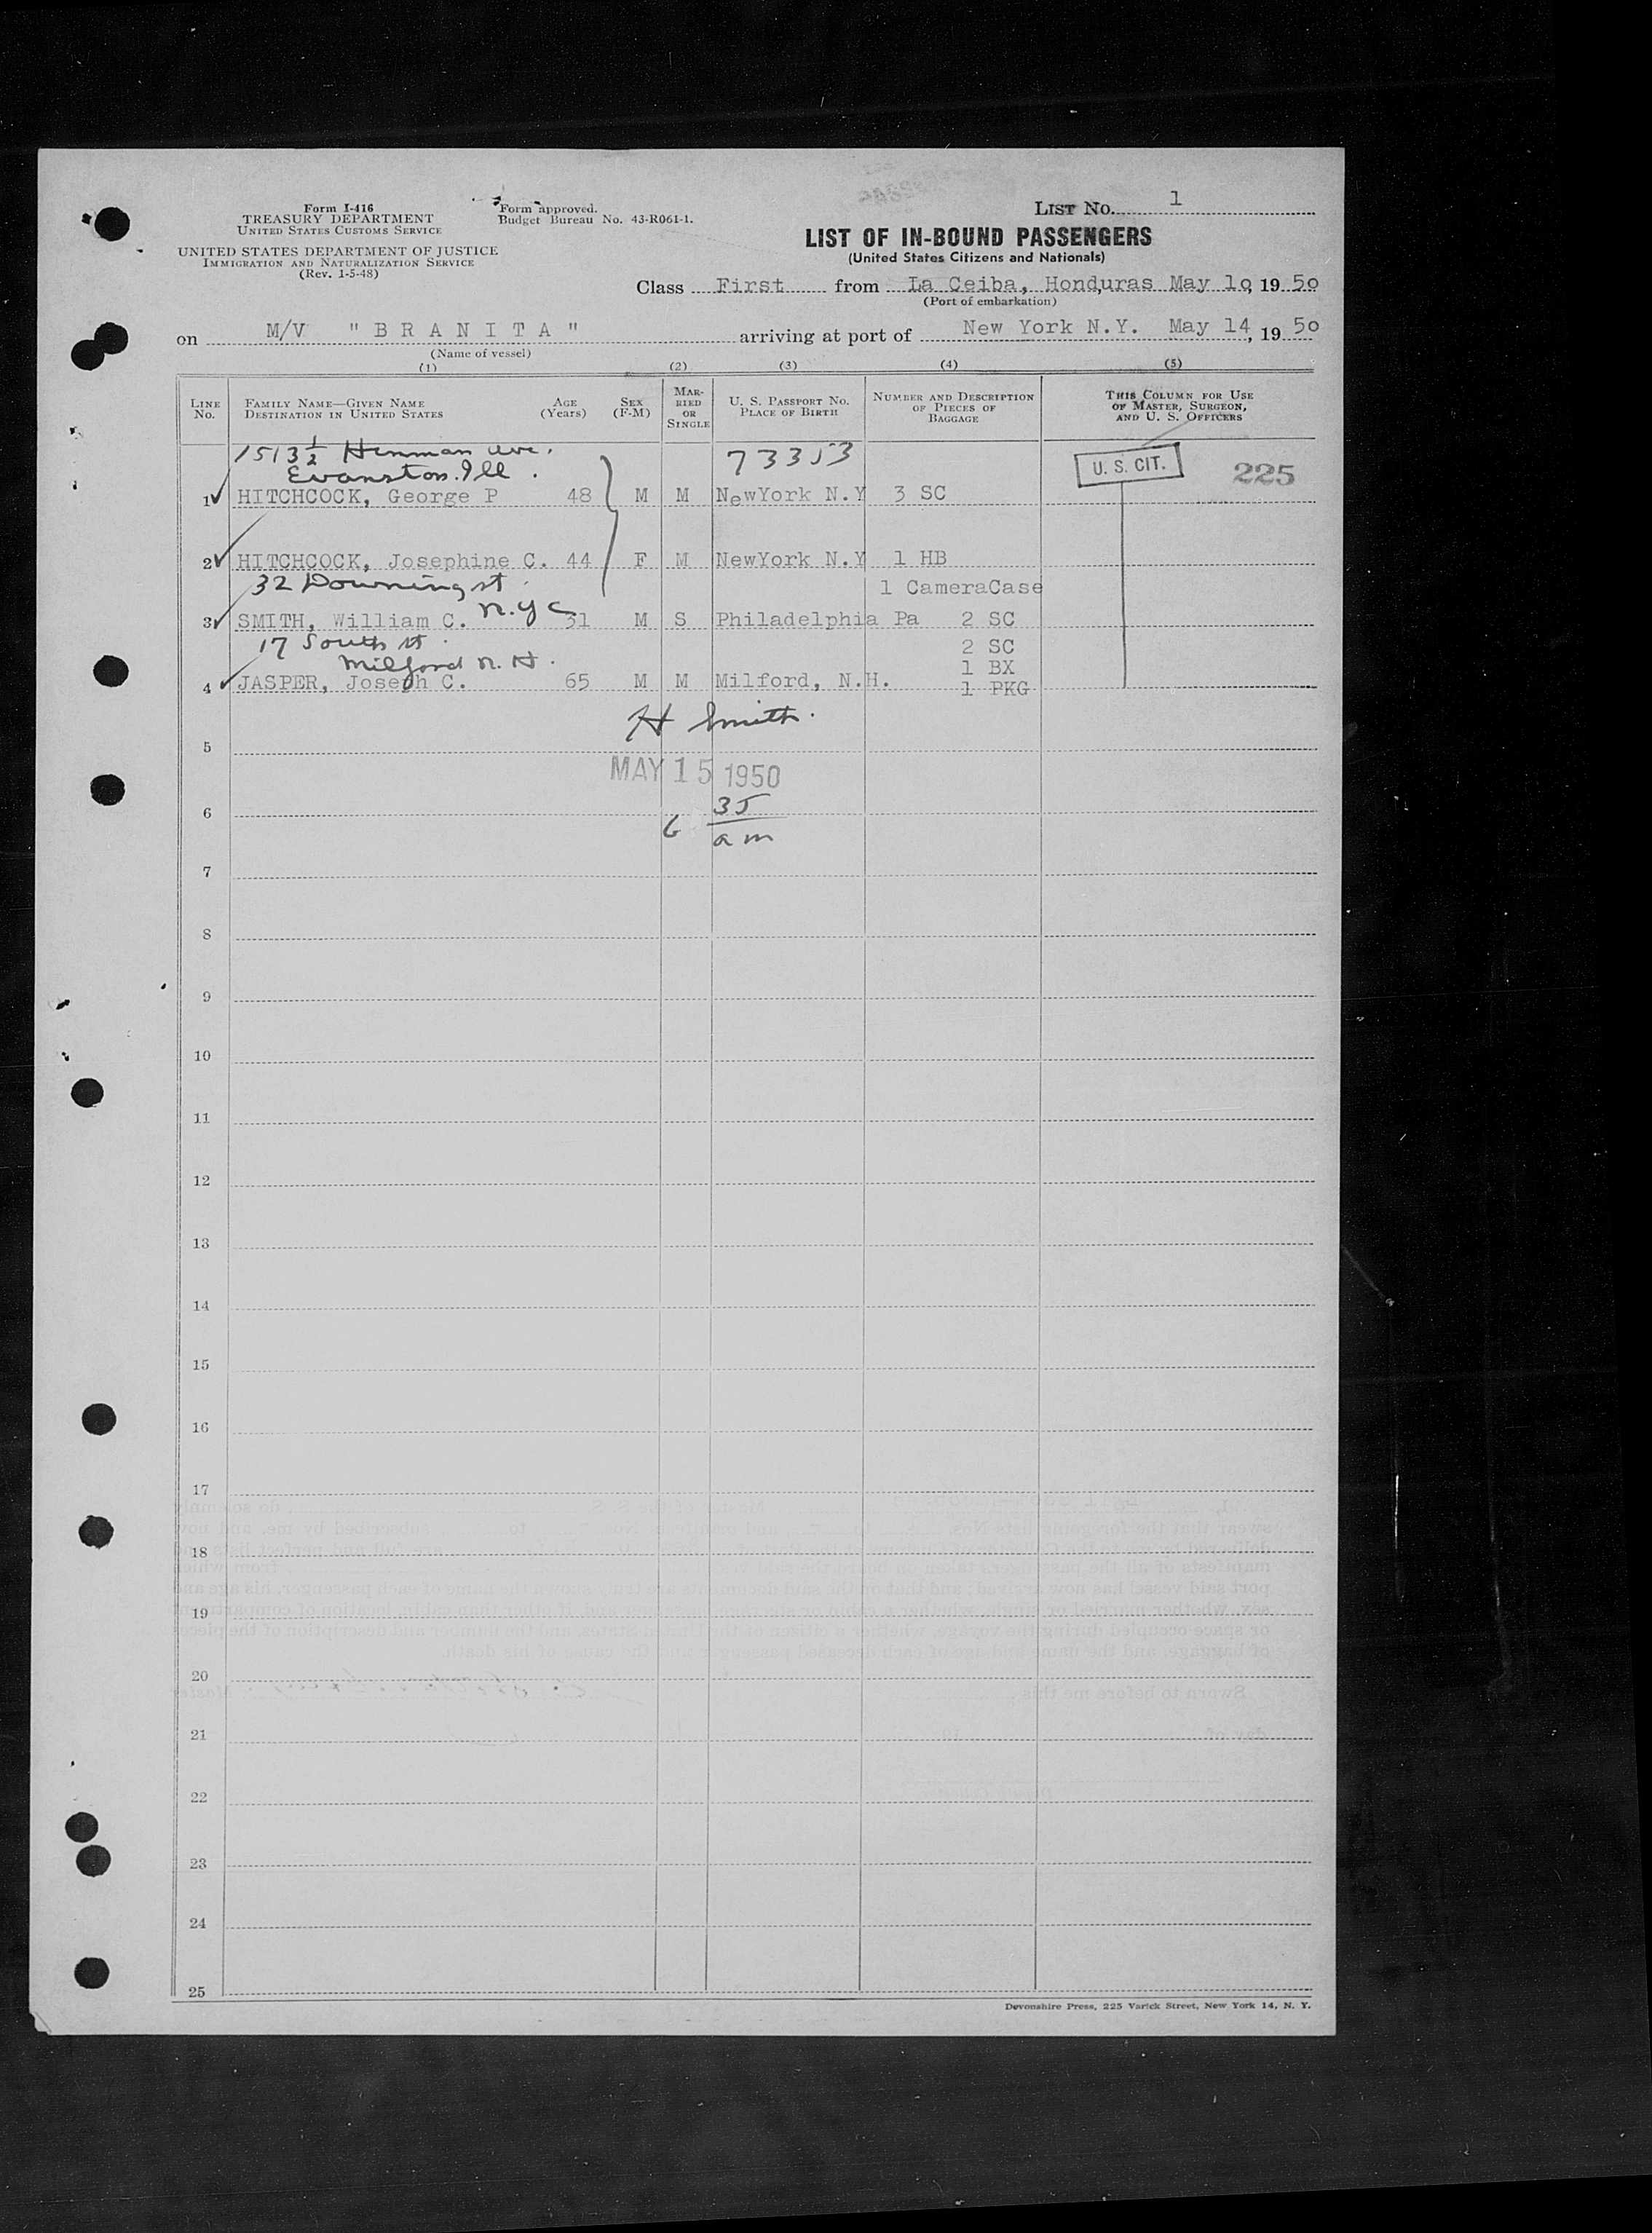 Form I-416
TREASURY DEPARTMENT
UNITED STATES CUSTOMS SERVICE
UNITED STATES DEPARTMENT OF JUSTICE
IMMIGRATION AND NATURALIZATION SERVICE
(Rev. 1-5-48)
Form approved.
Budget Bureau No. 43-R061-1.
LIST No. 1
LIST OF IN-BOUND PASSENGERS
(United States Citizens and Nationals)
Class First from La Ceiba, Honduras May 10, 1950
(Port of embarkation)
on M/V "BRANITA" arriving at port of New York N.Y. May 14, 1950
(Name of vessel)
(1) (2) (3) (4) (5)
LINE No. FAMILY NAME—GIVEN NAME DESTINATION IN UNITED STATES AGE (Years) SEX (F-M) MARRIED OR SINGLE U. S. PASSPORT NO. PLACE OF BIRTH NUMBER AND DESCRIPTION OF PIECES OF BAGGAGE THIS COLUMN FOR USE OF MASTER, SURGEON, AND U. S. OFFICERS
1513 1/2 Hinman ave. 73353
Evanston. Ill. U. S. CIT. 225
1 HITCHCOCK, George P 48 M M NewYork N.Y 3 SC
2 HITCHCOCK, Josephine C. 44 F M NewYork N.Y 1 HB
32 Downing st. 1 CameraCase
N.Y.C
3 SMITH, William C. 31 M S Philadelphia Pa 2 SC
17 South st. 2 SC
Milford N.H. 1 BX
4 JASPER, Joseph C. 65 M M Milford, N.H. 1 PKG
H Smith.
5
MAY 15 1950
6 35
6 am
7
8
9
10
11
12
13
14
15
16
17
18
19
20
21
22
23
24
25
Devonshire Press, 225 Varick Street, New York 14, N. Y.